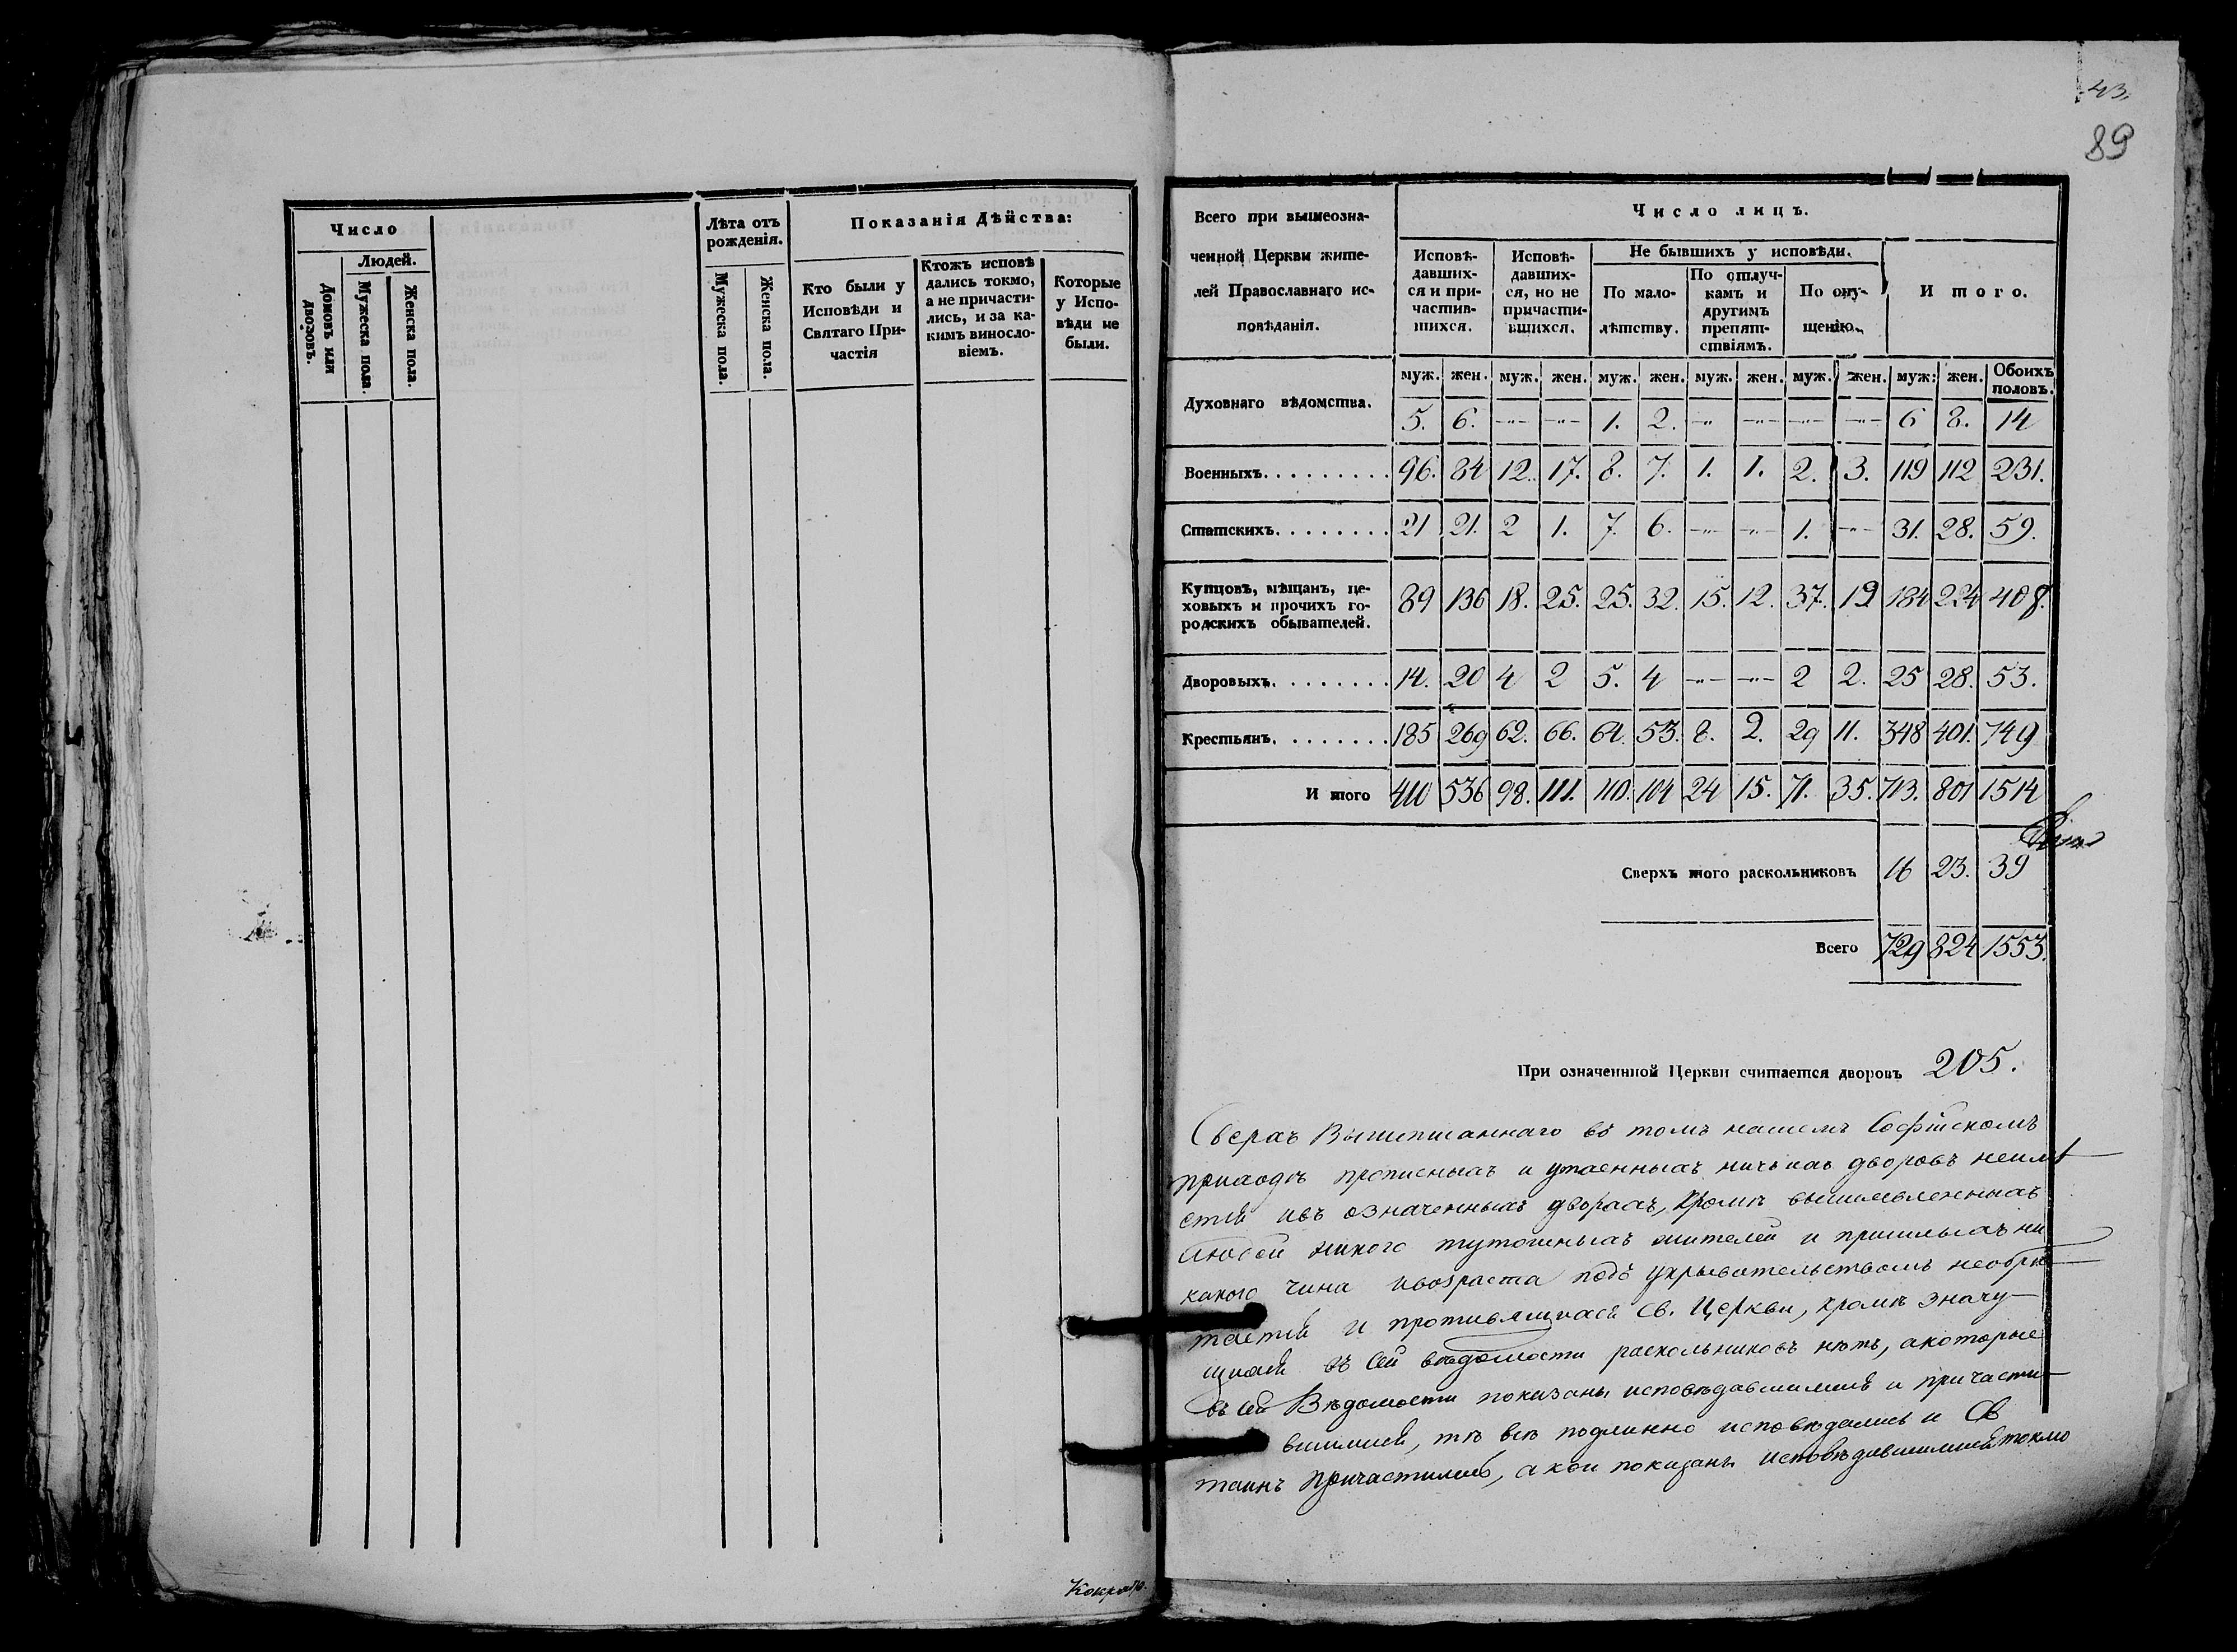 Число
Людей.
Домовъ или дворовъ.
Мужеска пола.
Женска пола.
Лѣта отъ рожденія.
Мужеска пола.
Женска пола.
Показанія Дѣйства:
Кто были у
Исповѣди и
Святаго При-
частія
Ктожъ исповѣ
дались токмо,
а не причасти-
лись, и за ка-
кимъ винослo-
віемъ.
Которые
у Испо-
вѣди не
были.
43.
89
Всего при вышеозна-
ченной Церкви жите-
лей Православнаго ис-
повѣданія.
Число лицъ.
Исповѣ-
давших-
ся и при-
частив-
шихся.
Исповѣ-
давших-
ся, но не
причасти-
вшихся.
Не бывшихъ у исповѣди.
По мало-
лѣтству.
По отлуч-
камъ и
другимъ
препят-
ствіямъ.
По опу-
щенію.
И того.
муж. жен. муж. жен. муж. жен. муж. жен. муж. жен. муж: жен. Обоихъ половъ.
Духовнаго вѣдомства. 5. 6. -"- -"- 1. 2. -" -"- -"- -"- 6 8. 14
Военныхъ. 96. 84 12. 17. 8. 7. 1. 1. 2. 3. 119 112 231.
Статскихъ. 21 21. 2 1. 7. 6. -"- -"- 1. -"- 31. 28. 59.
Купцовъ, мѣщанъ, це-
ховыхъ и прочихъ го-
родскихъ обывателей. 89 136 18. 25. 25. 32. 15. 12. 37. 19 184 224 408.
Дворовыхъ. 14. 20 4 2 5. 4 -"- -"- 2 2. 25 28. 53.
Крестьянъ. 185 269 62. 66. 64. 53. 8. 2. 29 11. 348 401. 749
И того 410 536 98. 111. 110. 104 24 15. 71. 35. 713. 801 1514
Сверхъ того раскольниковъ 16 23. 39
Всего 729 824 1553.
При означеннной Церкви считается дворовъ 205.
Сверхъ Вышеписаннаго въ томъ нашемъ Софійскомъ
приходѣ прописныхъ и утаенныхъ ничьихъ дворовъ неимѣ-
етъ ивъ означенныхъ дворахъ, кромѣ вышеявленныхъ
людей никого тутошныхъ жителей и пришлыхъ ни
какого чина ивозраста подъ укрывательствомъ необрѣ-
тается и противящихся Св. Церкви, кромѣ значу-
щихся въ сей вѣдомости раскольниковъ нѣтъ, акоторые
въ сей Вѣдомости показаны исповѣдавшимися и причасти-
вшимися, тѣ всѣ подлинно исповѣдались и Св
таинъ причастились, а кои показаны исповѣдавшимися токмо